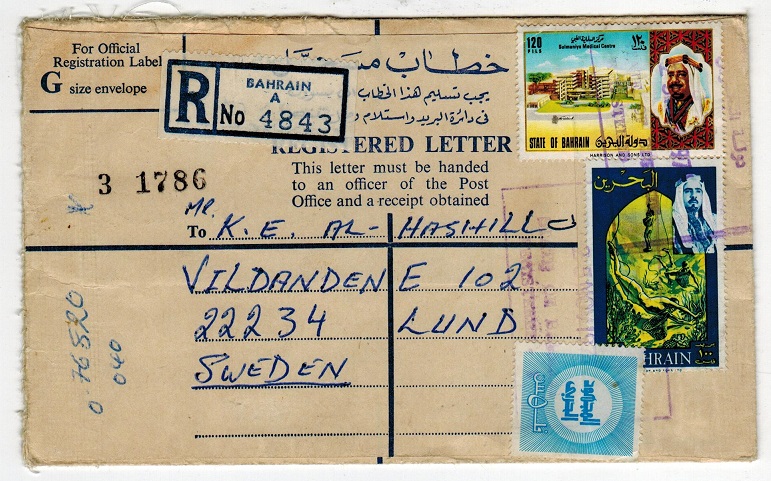 For Official
Registration Label
G size envelope
R
BAHRAIN
A
No 4843
خطاب
يجب تسليم هذا الخطاب
فى دائرة البريد واستلام
REGISTERED LETTER
This letter must be handed
to an officer of the Post
Office and a receipt obtained
3 1786
Mr.
To K. E. AL-HASHILL
VILDANDEN E 102
22234 LUND
SWEDEN
0 76520
040
120
FILS
Sulmaniya Medical Centre
١٢٠
فلس
STATE OF BAHRAIN
دولة البحرين
HARRISON AND SONS LTD
البحرين
BAHRAIN
١٠٠
فلس